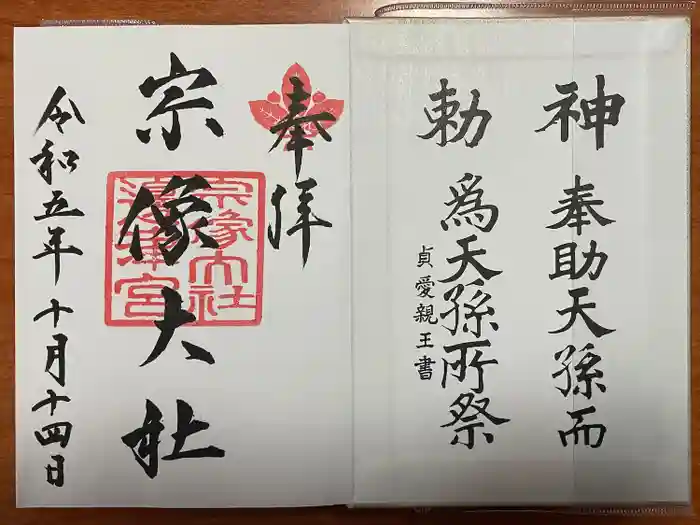 神勅
奉助天孫而
為天孫所祭
貞愛親王書
奉拝
宗像大社
宗像大社
邊津宮
令和五年十月十四日